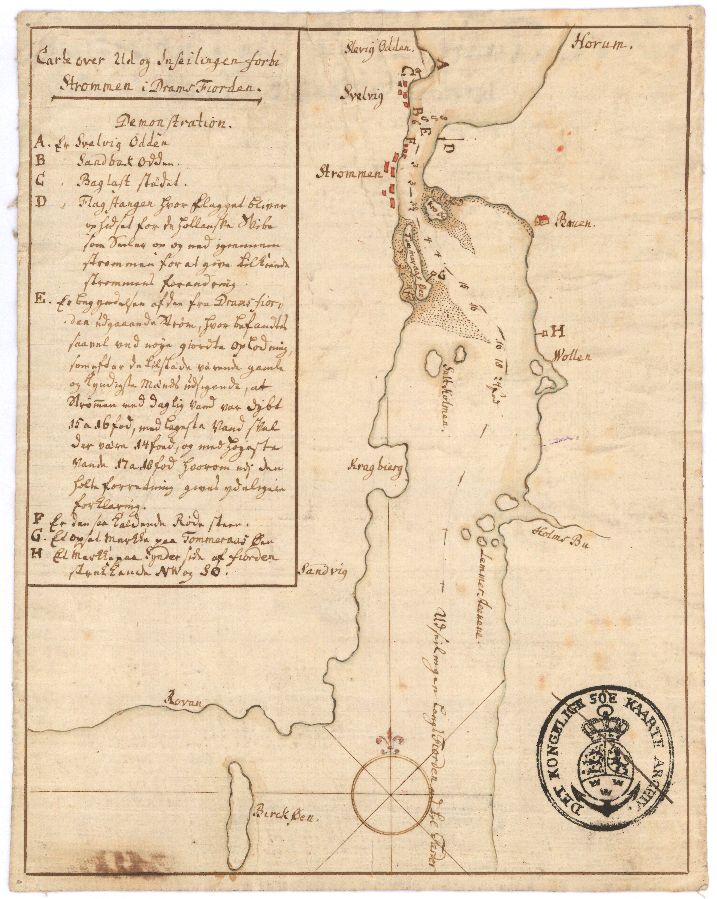 Carte over Ud og Inseilingen forbi
Strømmen i Drams Fiorden.
Demonstration.
A. Er Svelvig Odden
B Sandbak Odden.
C Baglast stædet.
D Flagstangen hvor flagget bliver
ophidset for de Hollenske Skibe
som Seiler op og ned igiennem
strømmen for at give tilkiende
strømmens forandring.
E. Er begyndelsen af den fra Drams fior
den udgaaende Strøm, hvor befandtes
saavel ved nøye giorte Oplodning,
som efter de tilstæde værende gamle
og kyndigste Mænds udsigende, at
Strømen ved daglig vand var dybt
15 a 16 fod, med laveste Vand skal
der være 14 foed, og med høyeste
Vande 17 a 18 fod hvorom ved den
holte forretning gives ydeligere
forklaring.
F Er den saa kaldende Røde steen.
G. Et opset Merke paa Tommeraas Øen
H Et Merke paa Synder side af fiorden
strekkende NW og SO.
Slevig Odden.
Horum.
A
C
Svelvig
B
6
E
F
D
Strømmen
3
3
3½
4
4
G
16
16
Bøuen.
16
18
24 fod
H
Wollen
Salt Holmen.
Kragbierg
Holms Bu
Lemmer Aeerne
Sandvig
Rovan
Birck Øen.
DET KONGELIGE SØE KAARTE ARCHIV.